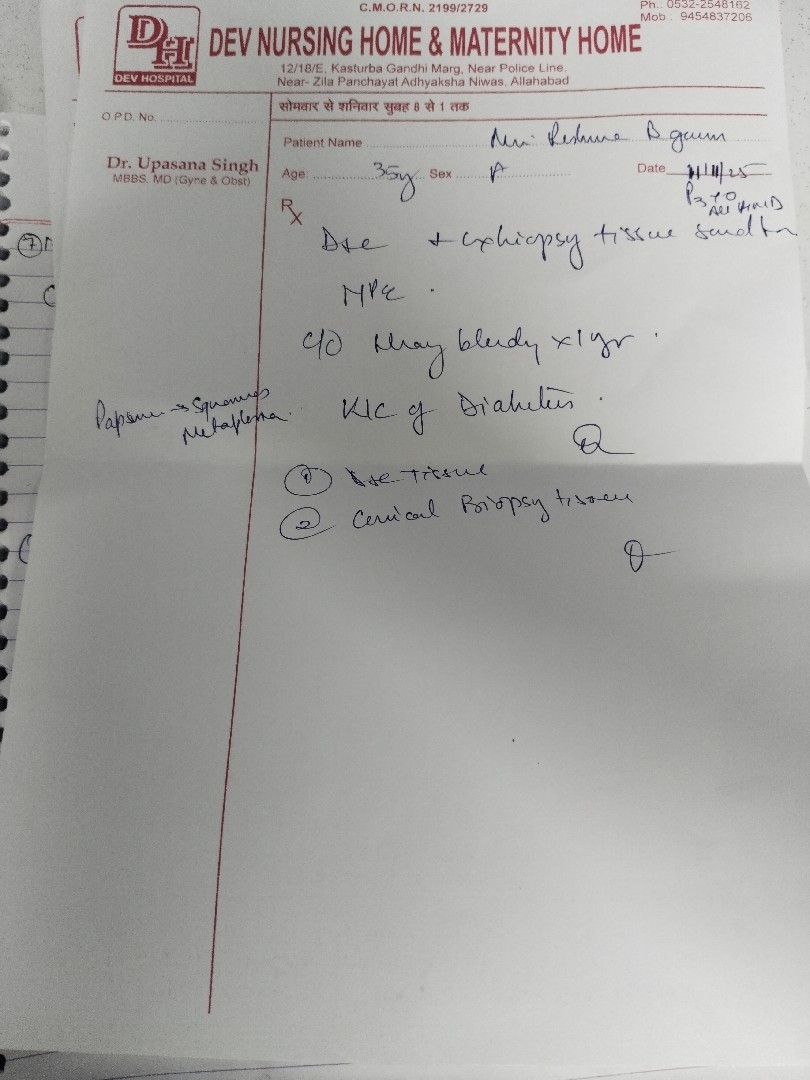 C.M.O.R.N. 2199/2729
Ph.: 0532-2548162
Mob.: 9454837206
DH
DEV HOSPITAL
DEV NURSING HOME & MATERNITY HOME
12/18/E, Kasturba Gandhi Marg, Near Police Line,
Near- Zila Panchayat Adhyaksha Niwas, Allahabad
O.P.D. No.
सोमवार से शनिवार सुबह 8 से 1 तक
Dr. Upasana Singh
MBBS. MD (Gyne & Obst)
Patient Name
Age 35y Sex Date 11/11/25
P3+0
Rx
D&C + cx biopsy tissue send for
HPE.
C/O bleedy x 1 yr.
K/C of Diabetes.
Papsmear → Squamous
Metaplasia.
① D&C Tissue
② Cervical Biopsy tissue
⑦